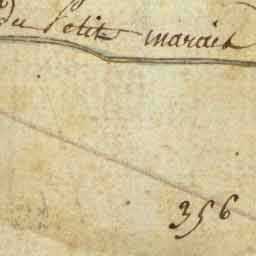 du Petit marais
356